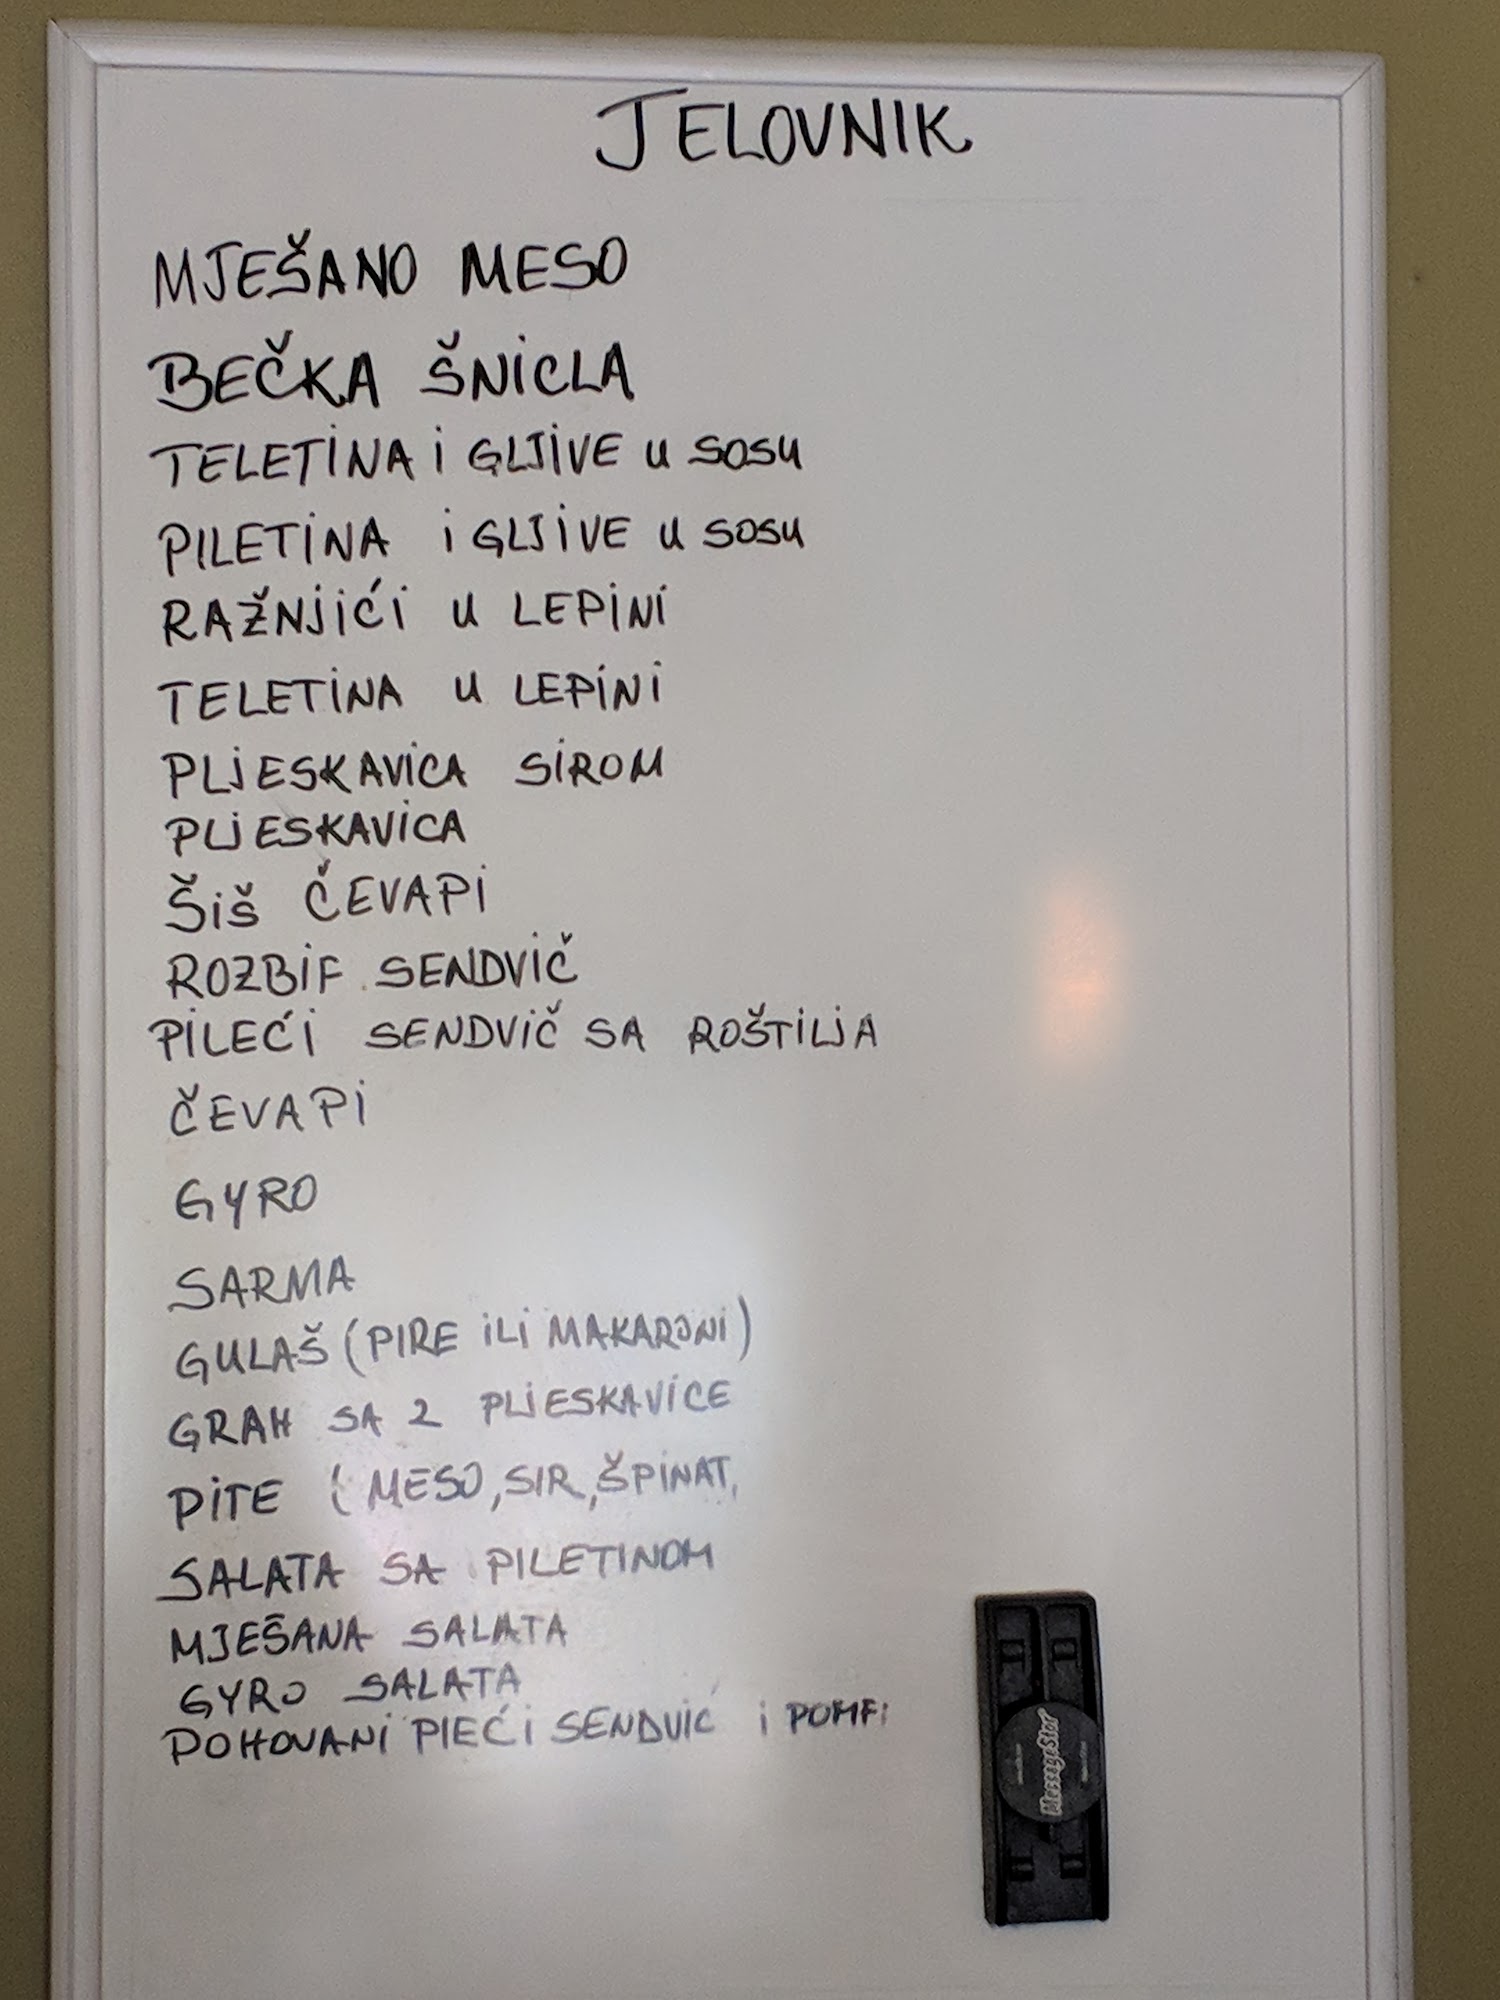 JELOVNIK
MJEŠANO MESO
BEČKA ŠNICLA
TELETINA i GLJIVE u SOSU
PILETINA i GLJIVE u SOSU
RAŽNJIĆI U LEPINI
TELETINA U LEPINI
PLJESKAVICA SIROM
PLJESKAVICA
ŠIŠ ČEVAPI
ROZBIF SENDVIČ
PILEĆI SENDVIČ SA ROŠTILJA
ČEVAPI
GYRO
SARMA
GULAŠ (PIRE ILI MAKARONI)
GRAH SA 2 PLJESKAVICE
PITE (MESO, SIR, ŠPINAT,
SALATA SA PILETINOM
MJEŠANA SALATA
GYRO SALATA
POHOVANI PIEĆI SENDVIĆ i POMFI
MessageStor